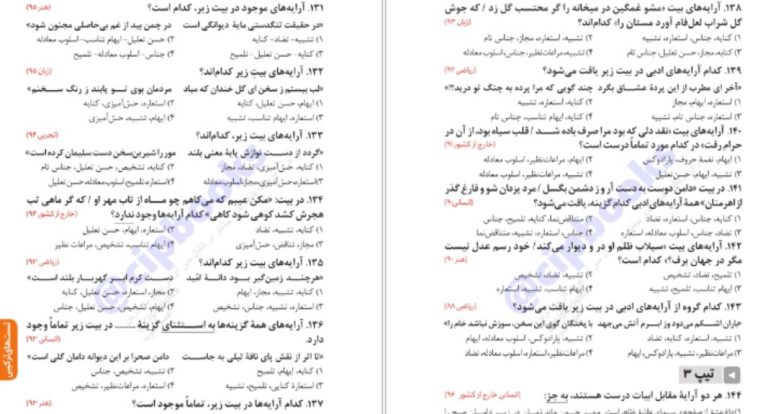 ۱۳۱. آرایه‌های موجود در بیت زیر، کدام است؟ (هنر ۹۵)
«در حقیقت تنگدستی مایهٔ دیوانگی است در چمن بید از غم بی‌حاصلی مجنون شود»
۱) تشبیه- تضاد- کنایه ۲) حسن تعلیل- ایهام تناسب- اسلوب معادله
۳) کنایه- حسن تعلیل- تلمیح ۴) جناس- اسلوب معادله- تلمیح
۱۳۲. آرایه‌های بیت زیر کدام‌اند؟ (زبان ۹۵)
«لب ببستم ز سخن ای گل خندان که مباد مردمان بوی تو یابند ز رنگ سخنم»
۱) ایهام، حسن تعلیل، کنایه ۲) استعاره، حس‌آمیزی، کنایه
۳) استعاره، ایهام تناسب، تشبیه ۴) ایهام، تشبیه، حس‌آمیزی
۱۳۳. آرایه‌های بیت زیر، کدام‌اند؟ (تجربی ۹۳)
«گردد از دست نوازش پایهٔ معنی بلند مور را شیرین‌سخن دست سلیمان کرده است»
۱) کنایه، حس‌آمیزی، تضاد، مجاز ۲) کنایه، تشخیص، حسن تعلیل، جناس
۳) استعاره، حس‌آمیزی، مجاز، اسلوب معادله ۴) استعاره، تلمیح، اسلوب معادله، حسن تعلیل
۱۳۴. در بیت: «مکن عیبم که می‌کاهم چو ماه از تاب مهر او / که گر ماهی تب
هجرش کشد کوهی شود کاهی» کدام آرایه‌ها وجود ندارد؟ (خارج از کشور ۹۳)
۱) کنایه، تشبیه، تضاد ۲) استعاره، ایهام، حسن تعلیل
۳) مجاز، تناقض، حس‌آمیزی ۴) ایهام تناسب، تشخیص، مراعات نظیر
۱۳۵. آرایه‌های بیت زیر کدام‌اند؟ (ریاضی ۹۳)
«هرچند زمین‌گیر بود دانهٔ امّید دست کرم ابر گهربار بلند است»
۱) کنایه، تشبیه، مجاز، ایهام ۲) مجاز، استعاره، حسن تعلیل، کنایه
۳) استعاره، تشبیه، جناس، تشخیص ۴) تشخیص، کنایه، حسن تعلیل، جناس
۱۳۶. آرایه‌های همهٔ گزینه‌ها به استثنای گزینهٔ ........ در بیت زیر تماماً وجود
دارد. (انسانی ۹۳)
«تا اثر از نقش پای ناقهٔ لیلی به جاست دامن صحرا بر این دیوانه دامان گلی است»
۱) کنایه، ایهام، تلمیح ۲) تشبیه، تشخیص، جناس
۳) استعارهٔ کنایی، تلمیح، تشبیه ۴) مراعات‌نظیر، استعاره، تشخیص
۱۳۷. کدام آرایه‌ها در بیت زیر، تماماً موجود است؟ (هنر ۹۳)
تست‌های ترکیبی
۱۳۸. آرایه‌های بیت «مشو غمگین در میخانه را گر محتسب گل زد / که جوش
گل شراب لعل‌فام آورد مستان را» کدام‌اند؟ (زبان ۹۳)
۱) کنایه، جناس، استعاره، تشبیه ۲) تشبیه، استعاره، حسن تعلیل، جناس تام
۳) کنایه، مجاز، حسن تعلیل، جناس تام ۴) تشبیه، مراعات‌نظیر، جناس، اسلوب معادله
۱۳۹. کدام آرایه‌های ادبی در بیت زیر یافت می‌شود؟ (ریاضی ۹۲)
«آخر ای مطرب از این پردهٔ عشاق بگرد چند گویی که مرا پرده به چنگ تو درید؟!»
۱) استعاره، ایهام، مجاز ۲) کنایه، استعاره، تشبیه
۳) استعاره، جناس تام، تشبیه ۴) کنایه، ایهام تناسب، جناس تام
۱۴۰. آرایه‌های بیت «نقد دلی که بود مرا صرف باده شد / قلب سیاه بود، از آن در
حرام رفت» در کدام مورد تماماً درست است؟ (خارج از کشور ۹۱)
۱) ایهام، نغمهٔ حروف، پارادوکس ۲) ایهام، مراعات‌نظیر، اسلوب معادله
۳) تشبیه، ایهام، حسن‌تعلیل ۴) تشبیه، جناس، اسلوب معادله
۱۴۱. در بیت «دامن دوست به دست آر و ز دشمن بگسل / مرد یزدان شو و فارغ گذر
از اهرمنان» همهٔ آرایه‌های ادبی کدام گزینه، یافت می‌شود؟ (انسانی ۹۰)
۱) کنایه، جناس، استعاره، تضاد ۲) متناقض‌نما، کنایه، تلمیح، جناس
۳) جناس، تضاد، اسلوب معادله، استعاره ۴) تضاد، جناس، تشبیه، متناقض‌نما
۱۴۲. آرایه‌های بیت «سیلاب ظلم او در و دیوار می‌کند/ خود رسم عدل نیست
مگر در جهان برف؟» کدام است؟ (هنر ۹۰)
۱) تلمیح، تضاد، تشبیه ۲) تشبیه، تضاد، تشخیص
۳) ایهام تناسب، تلمیح، تشبیه ۴) تشبیه، ایهام، تشخیص
۱۴۳. کدام گروه از آرایه‌های ادبی در بیت زیر یافت می‌شود؟ (ریاضی ۸۸)
۱) تشبیه، کنایه، پارادوکس، مجاز ۲) استعاره، جناس، کنایه، اسلوب معادله
۳) مراعات‌نظیر، تشبیه، پارادوکس، ایهام ۴) مراعات‌نظیر، استعاره، اسلوب معادله، تضاد
تیپ ۳
۱۴۴. هر دو آرایهٔ مقابل ابیات درست هستند، به جز: (انسانی خارج از کشور ۹۶)